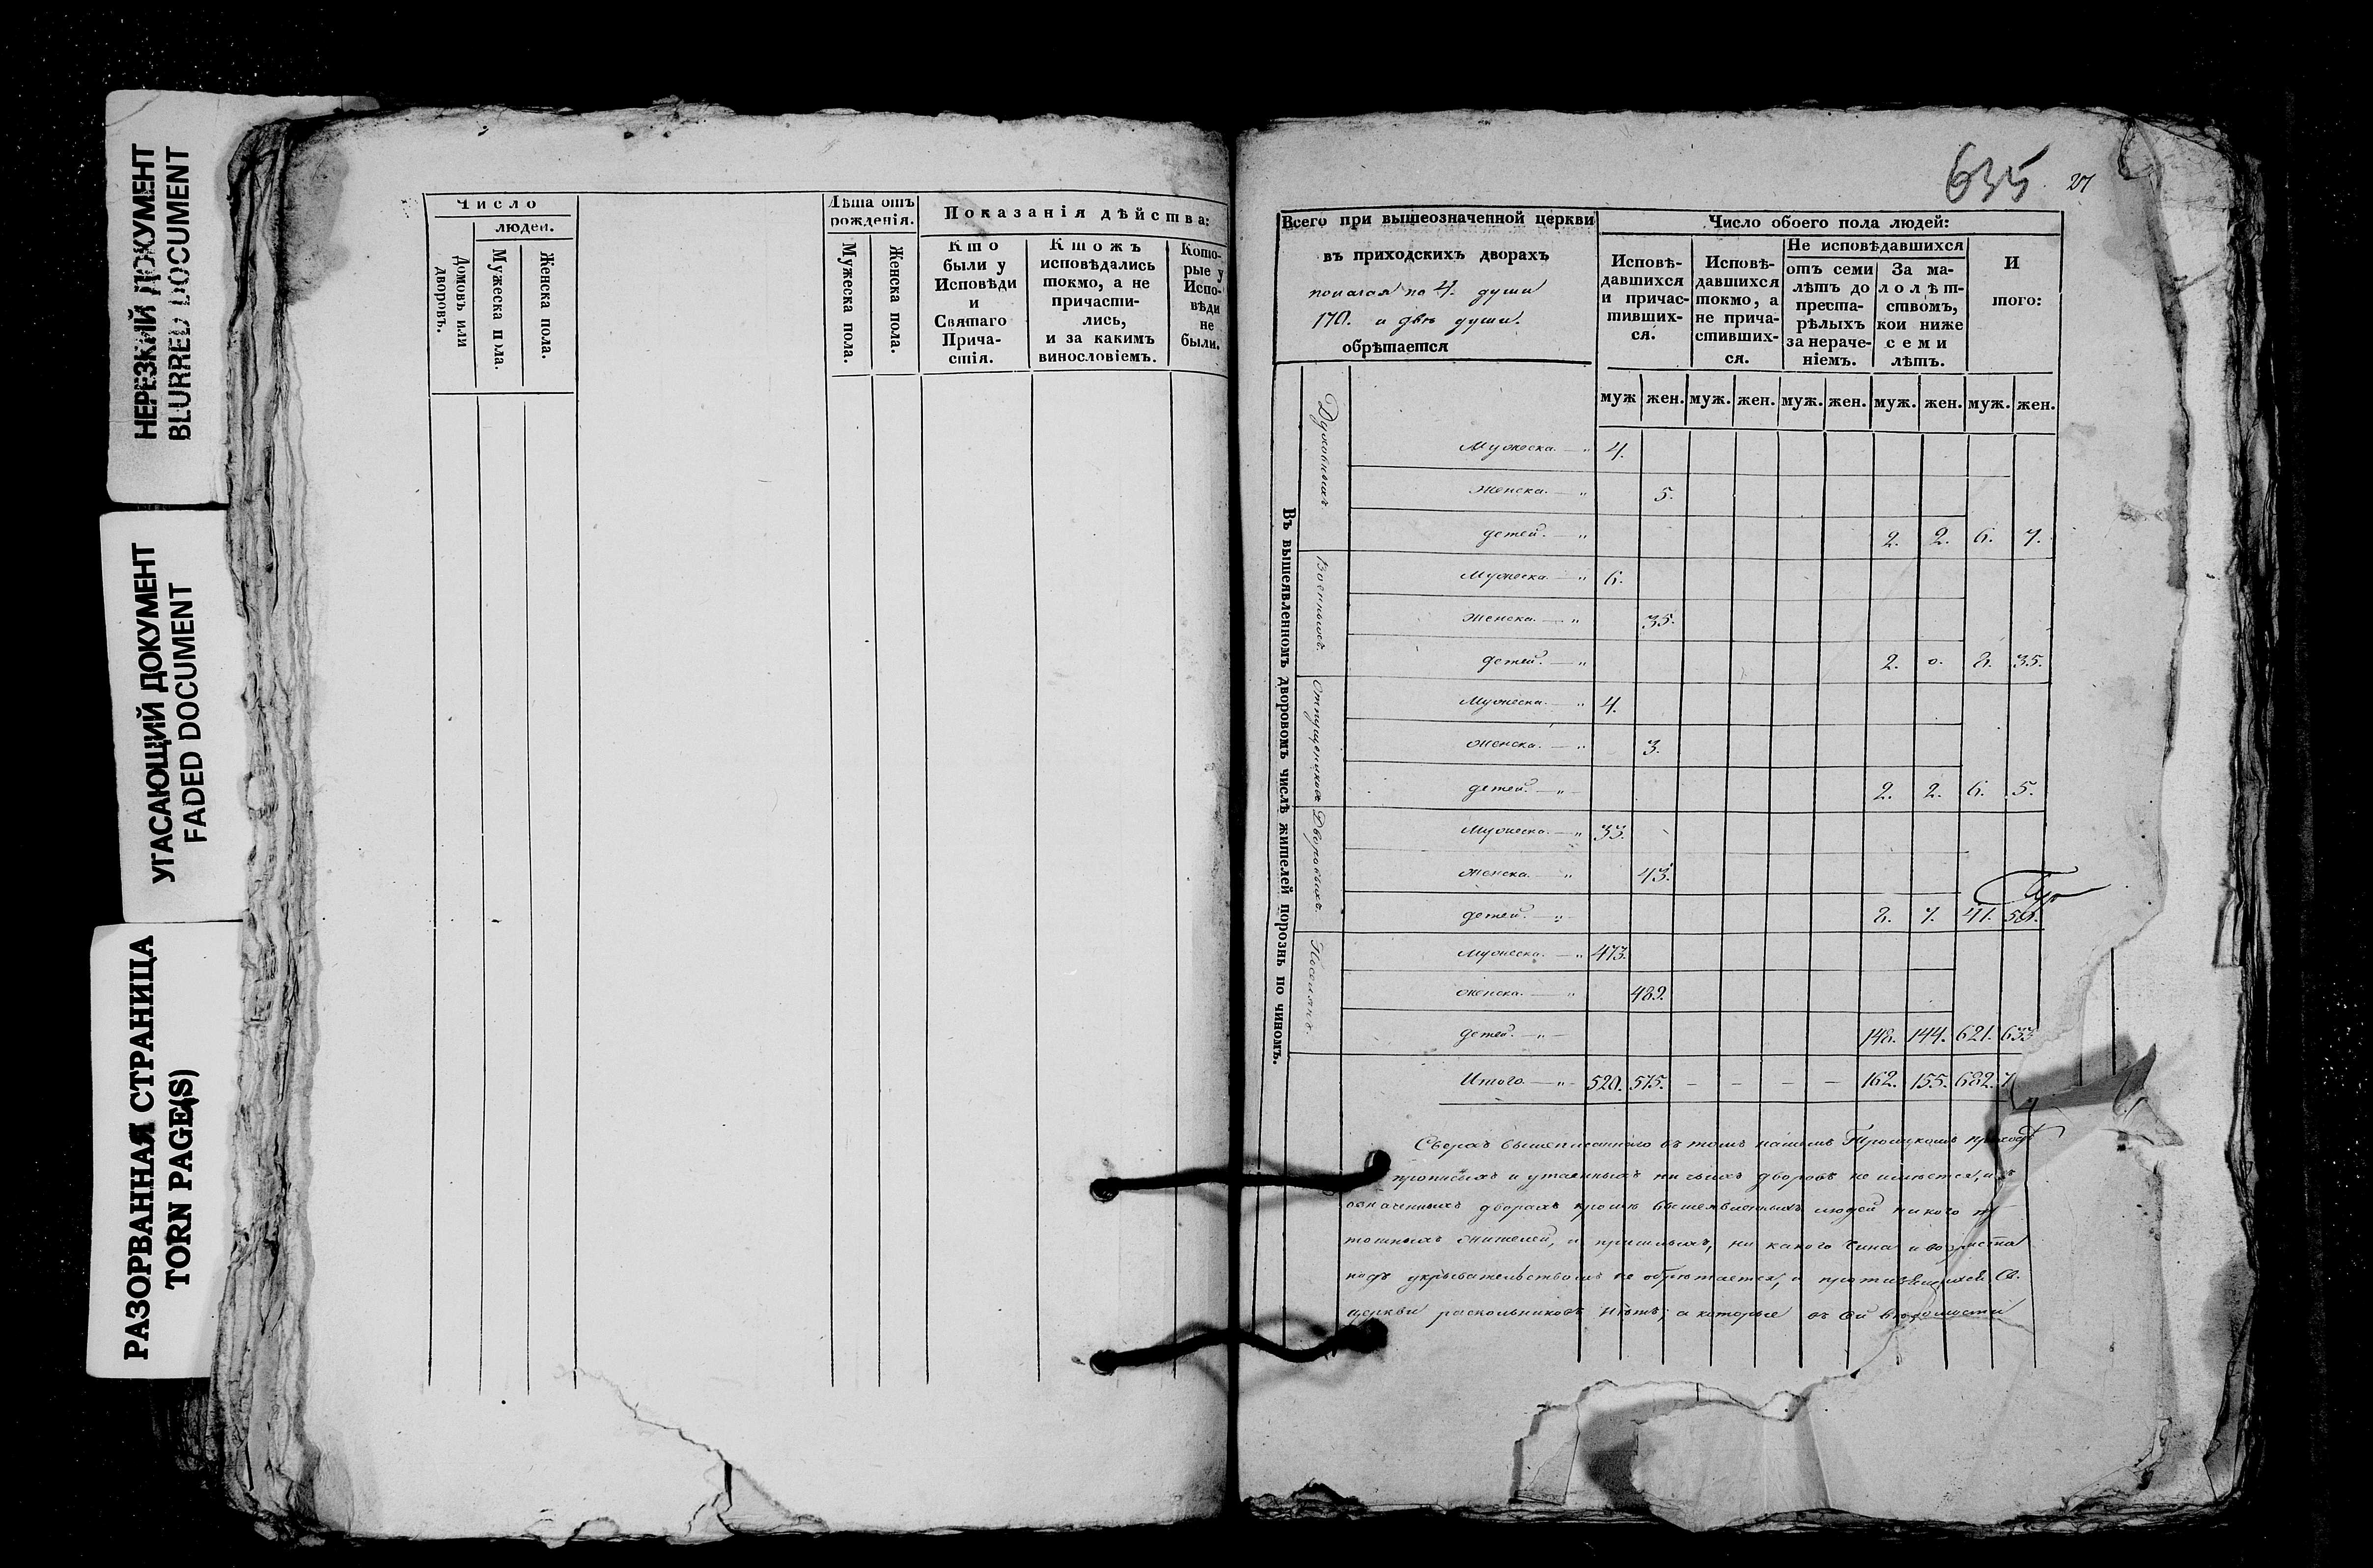 НЕРЕЗКИЙ ДОКУМЕНТ
BLURRED DOCUMENT
УГАСАЮЩИЙ ДОКУМЕНТ
FADED DOCUMENT
РАЗОРВАННАЯ СТРАНИЦА
TORN PAGE(S)
Число
людей.
Домовъ или дворовъ.
Мужеска пола.
Женска пола.
Лѣта отъ рожденія.
Мужеска пола.
Женска пола.
Показанія дѣйства:
Кто были у Исповѣди и Святаго Причастія.
Ктожъ исповѣдались токмо, а не причастились, и за какимъ винословіемъ.
Которые у Исповѣди не были.
635
27
Всего при вышеозначенной церкви
въ приходскихъ дворахъ
полагая по 4. души
170. и двѣ души.
обрѣтается
Число обоего пола людей:
Исповѣдавшихся и причастившихся.
Исповѣдавшихся токмо, а не причастившихся.
Не исповѣдавшихся
отъ семи лѣтъ до престарѣлыхъ за нераченіемъ.
За малолѣтствомъ, кои ниже семи лѣтъ.
Итого:
муж жен. муж. жен. муж. жен. муж. жен. муж. жен.
Въ вышеявленномъ дворовомъ числѣ жителей порознь по чиномъ.
Духовныхъ
Мужеска. — " 4.
Женска. — " 5.
детей. — " 2. 2. 6. 7.
Военныхъ.
Мужеска. — " 6.
Женска. — " 35.
детей. — " 2. 0. 8. 35.
Отпущениковъ
Мужеска. — " 4.
Женска. — " 3.
детей. — " 2. 2. 6. 5.
Дворовыхъ.
Мужеска. — " 33.
Женска. — " 43.
детей. — " 8. 7. 41. 50.
Поселянъ.
Мужеска. — " 473.
женска. — " 489.
детей. — " — 148. 144. 621. 633
Итого — " — 520. 575. — — — — 162. 155. 682. 7
Сверхъ вышеписаннаго въ томъ нашемъ Троицкомъ приходѣ
прописныхъ и утаенныхъ ни чьихъ дворовъ не имѣется, и въ
означенныхъ дворахъ кромѣ вышеявленныхъ людей никого
жителей, и пришлыхъ, ни какого чина и возраста
подъ укрывательствомъ не обрѣтается, и Св.
церкви раскольниковъ нѣтъ; а которые въ сей вѣдомости